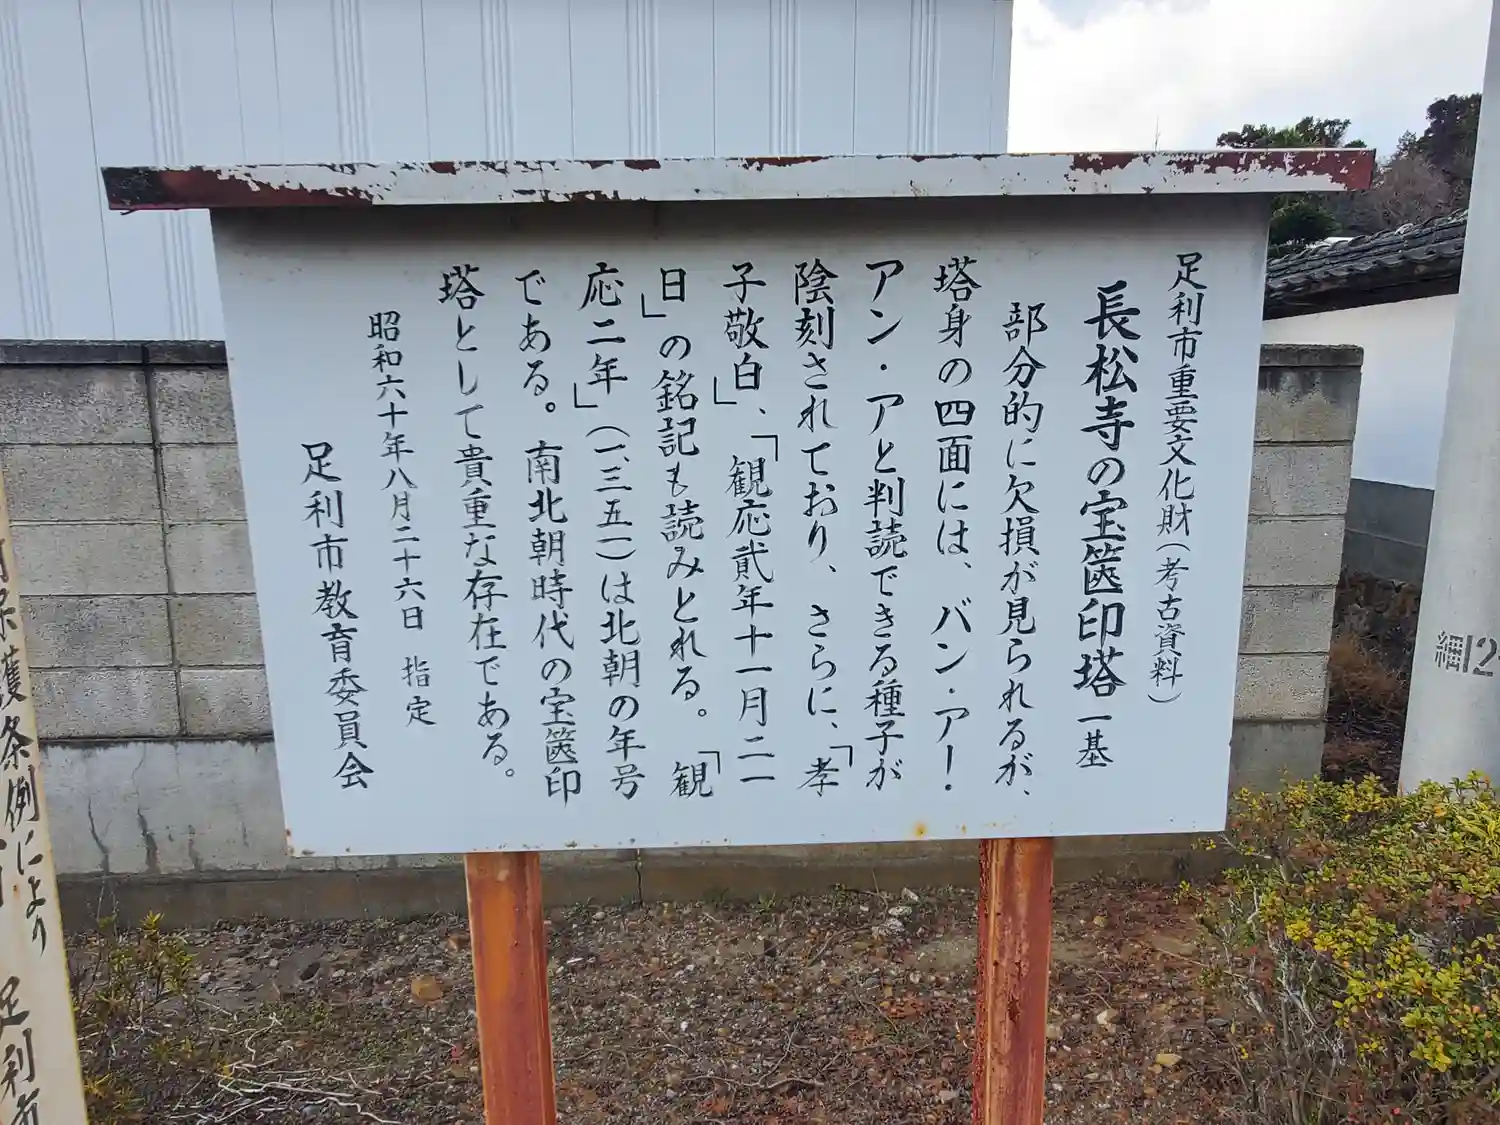 足利市重要文化財(考古資料)
長松寺の宝篋印塔 一基
部分的に欠損が見られるが、
塔身の四面には、バン・アー・
アン・アと判読できる種子が
陰刻されており、さらに、「孝
子敬白」、「観応貳年十一月二一
日」の銘記も読みとれる。「観
応二年」(一三五一)は北朝の年号
である。南北朝時代の宝篋印
塔として貴重な存在である。
昭和六十年八月二十六日 指定
足利市教育委員会
保護条例により
足利市
綱12